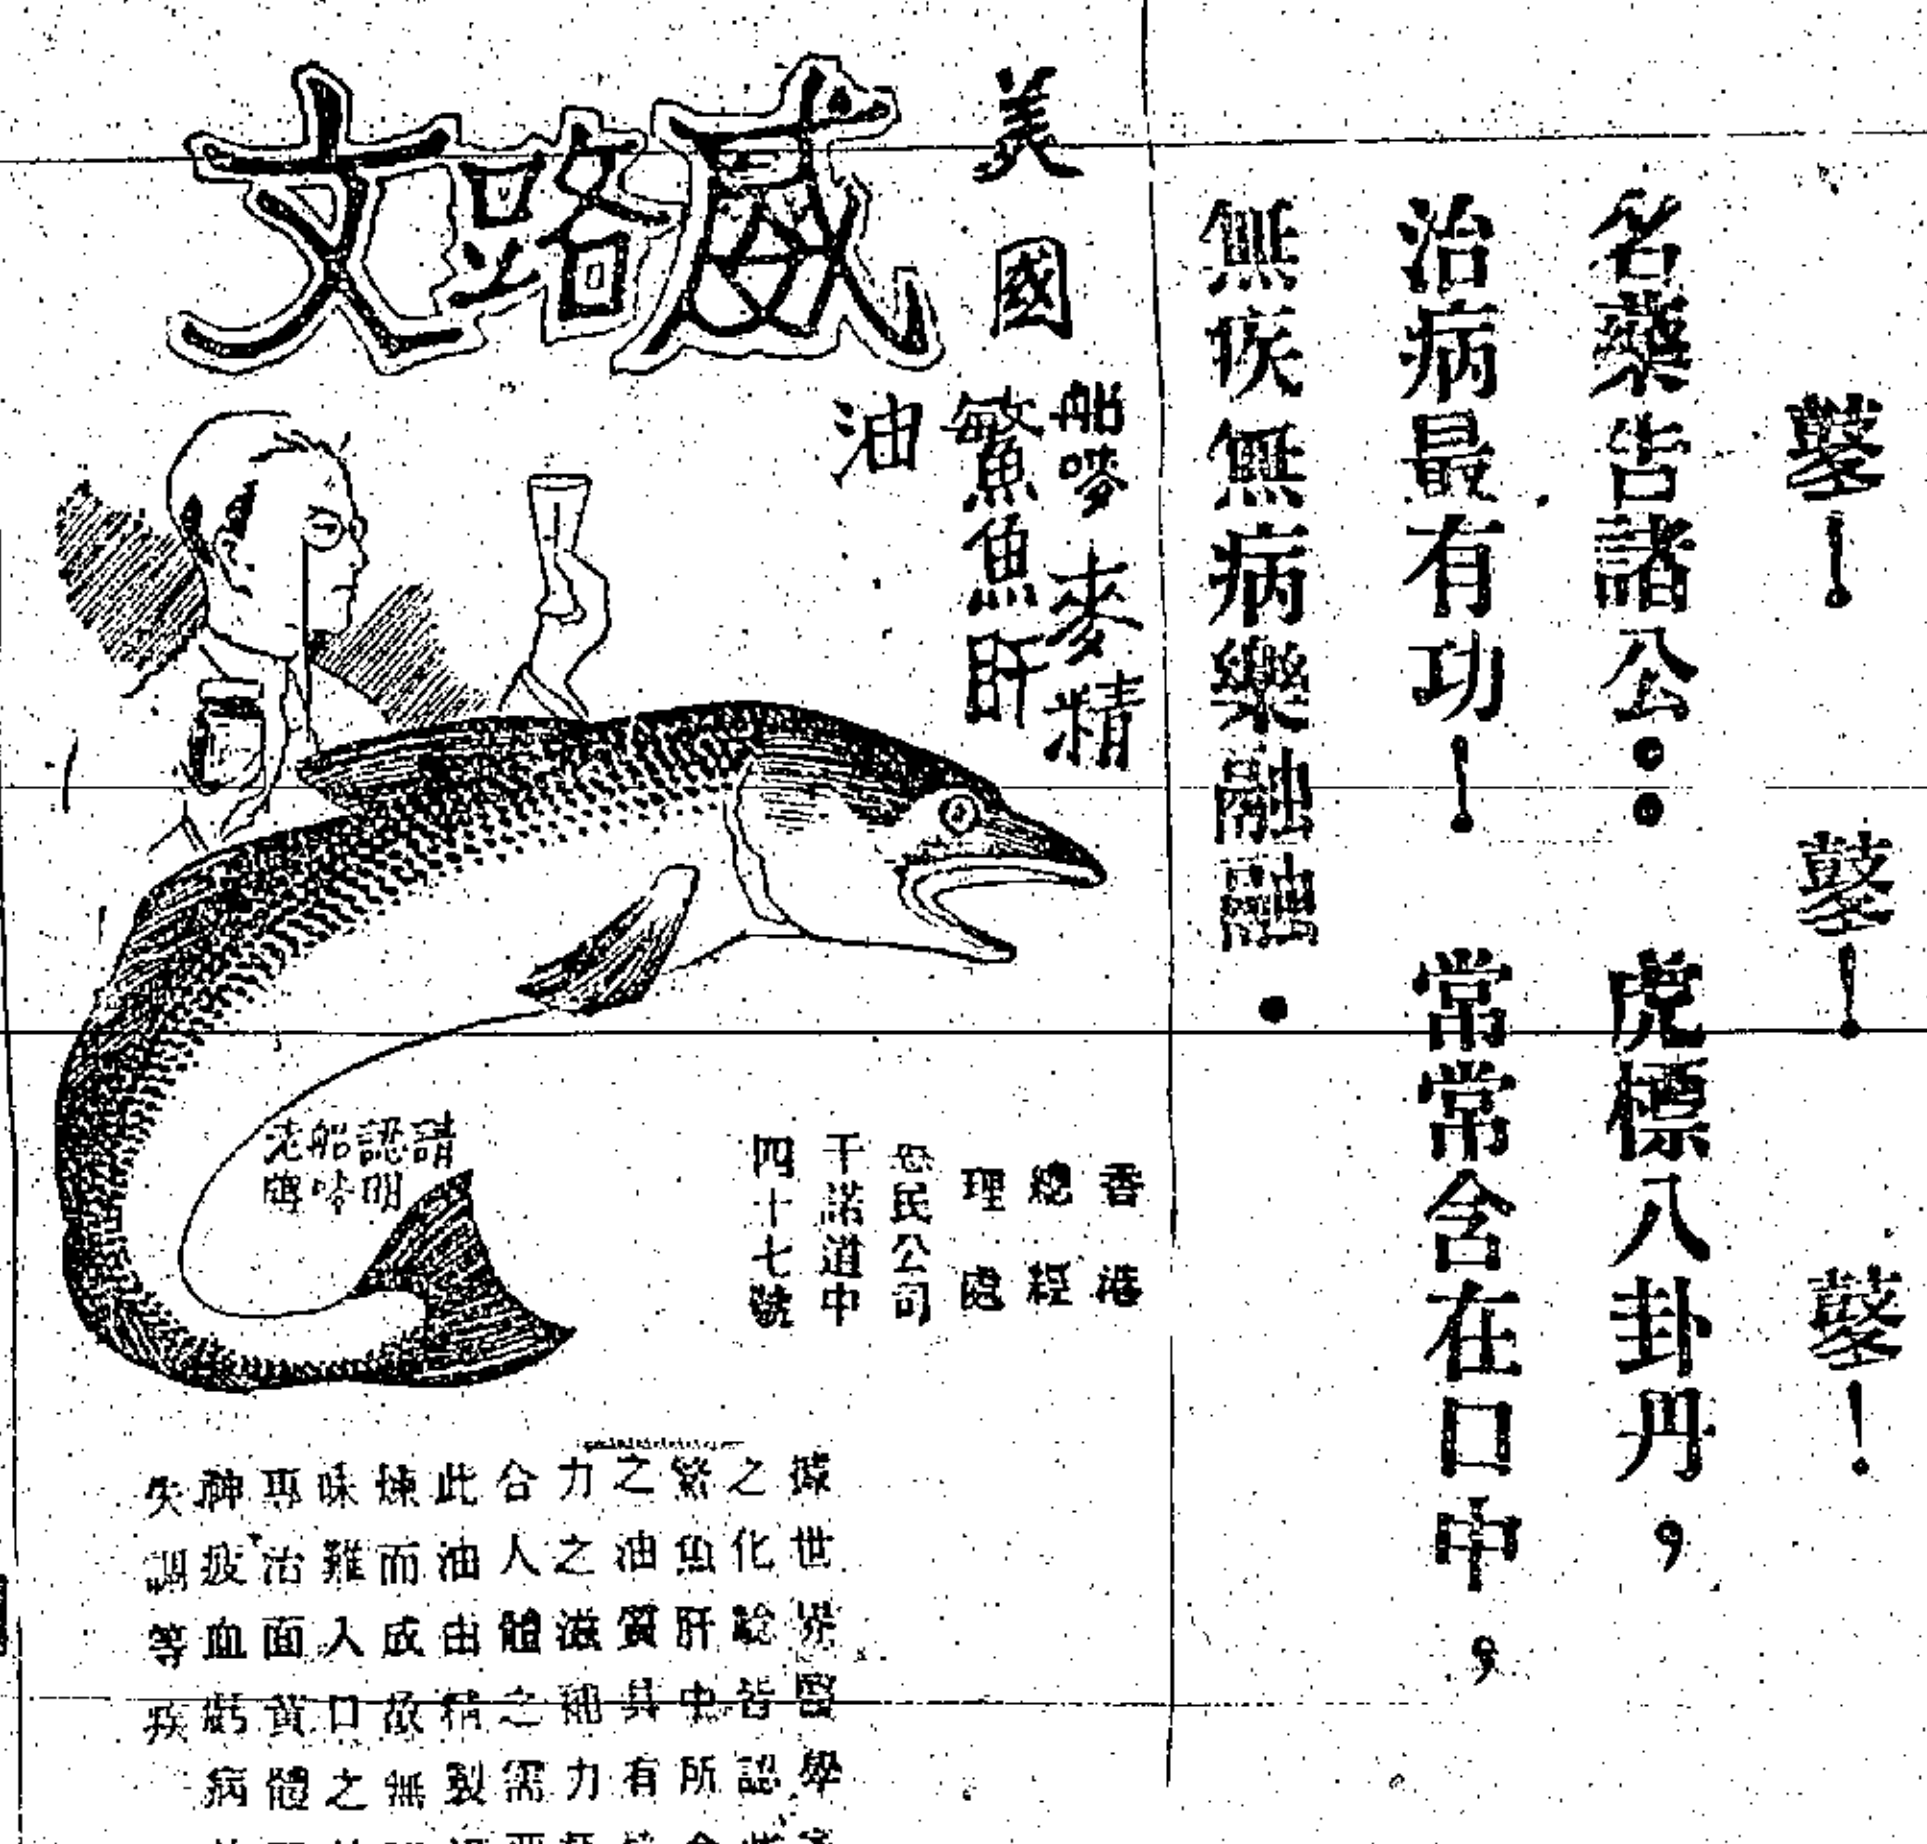 鼕！ 鼕！ 鼕！
名藥告諸公：虎標八卦丹，
治病最有功！常常含在口中，
無疾無病樂融融．
美國
威路文
船嘜麥精
鰵魚肝
油
香港
總經
理處
民公司
干諾道中
四十七號
請認明船嘜
據世界醫學
之化驗皆認
鰵魚肝中所
之油質具有
力之滋補力
合人體之需
此油由精製
煉而成故無
味難入口之
專治面黃體
神疲血虧病
失調等疾